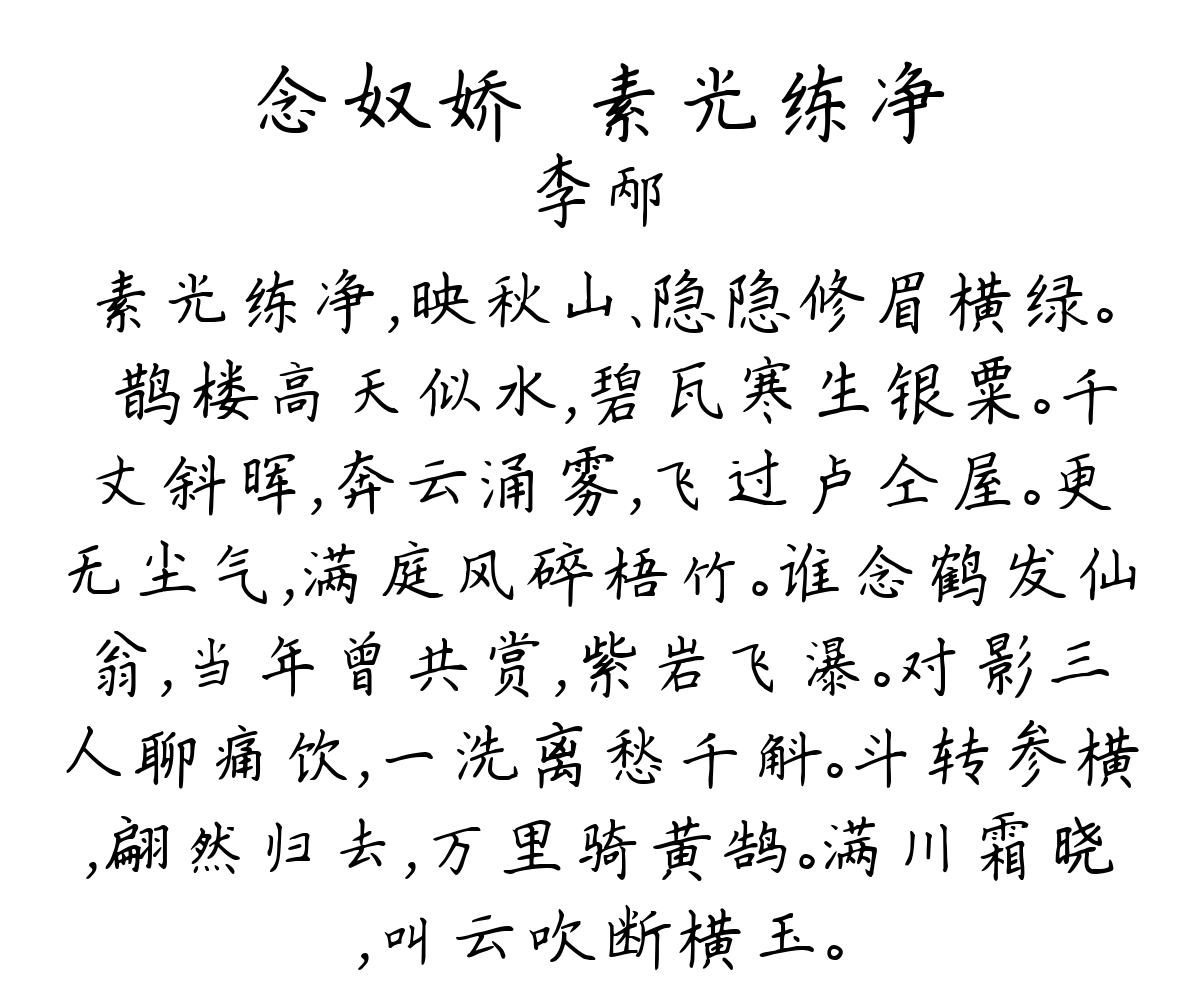 念奴娇 素光练净
李邴
素光练净,映秋山、隐隐修眉横绿。
鹊楼高天似水,碧瓦寒生银粟。千
丈斜晖,奔云涌雾,飞过卢仝屋。更
无尘气,满庭风碎梧竹。谁念鹤发仙
翁,当年曾共赏,紫岩飞瀑。对影三
人聊痛饮,一洗离愁千斛。斗转参横
,翩然归去,万里骑黄鹄。满川霜晓
,叫云吹断横玉。